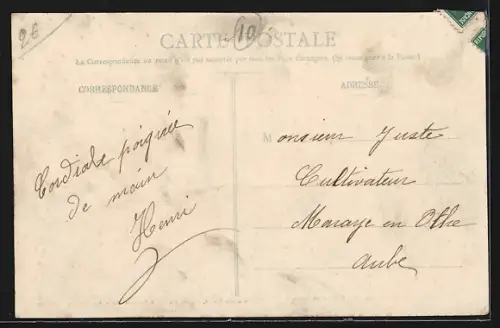 2€
10
CARTE POSTALE
La Correspondance au recto n'est pas acceptée par tous les Pays étrangers. (Se renseigner à la Poste)
CORRESPONDANCE
ADRESSE
Cordiale poignée
de main
Henri
Monsieur Juste
Cultivateur
Maraye en Othe
Aube